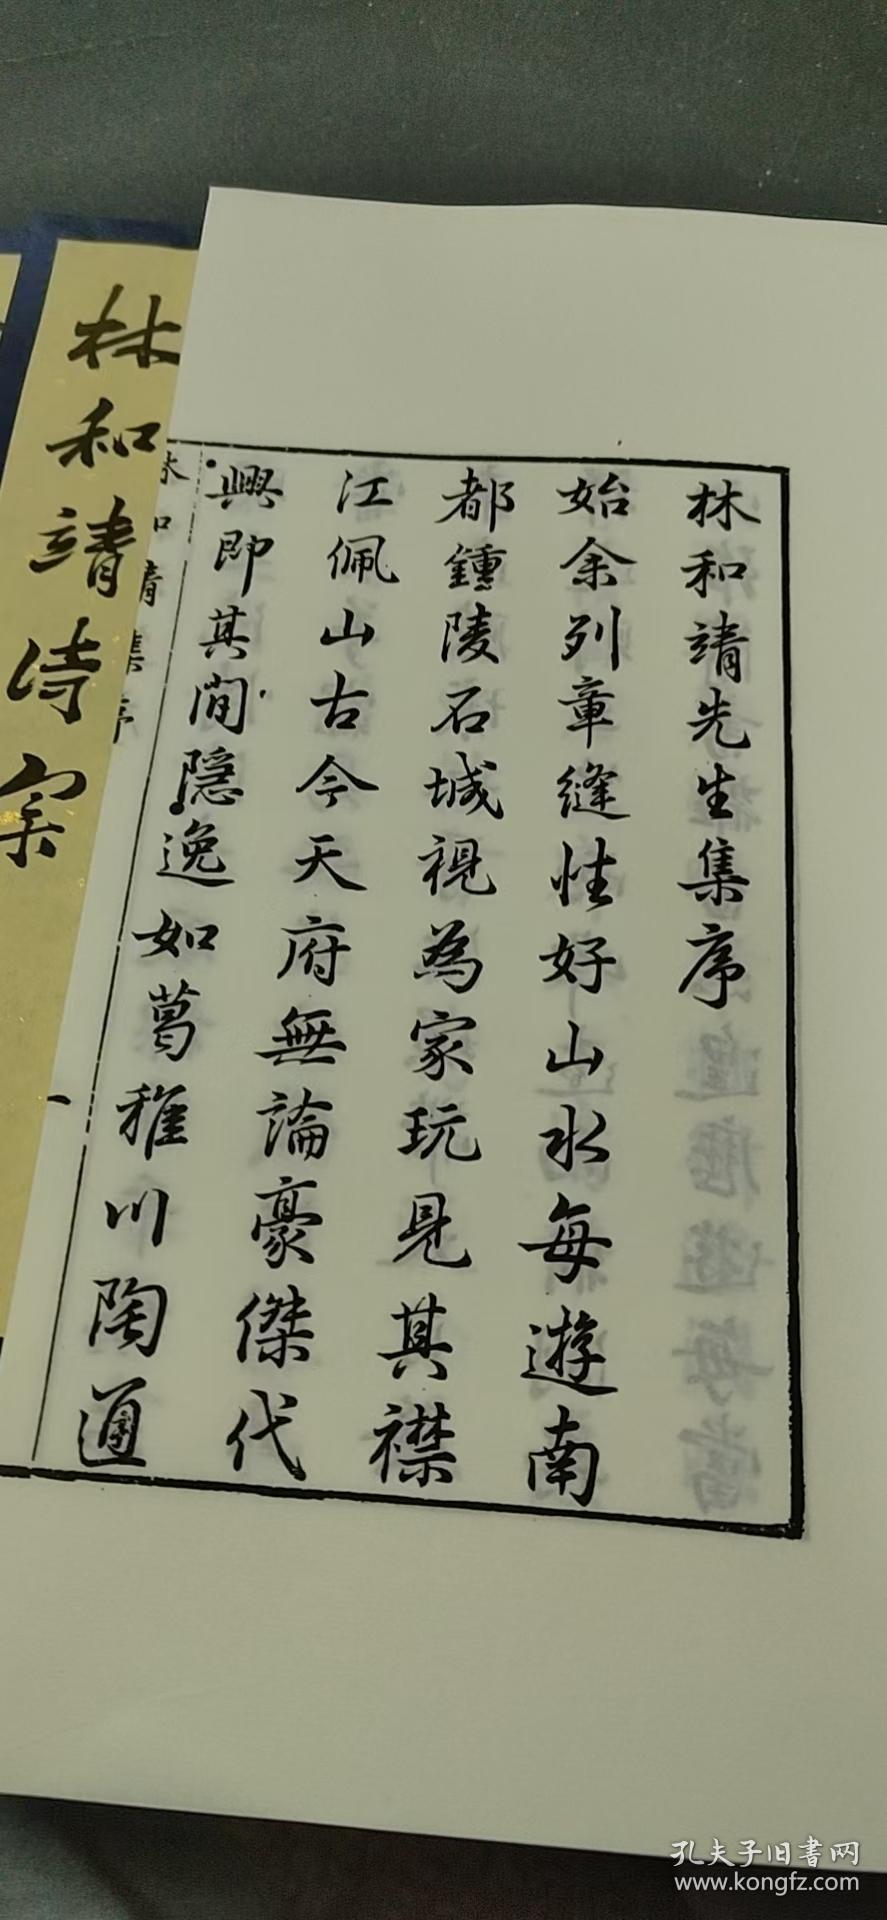 林和靖先生集序
始余列章縫性好山水每遊南
都鍾陵石城視為家玩見其襟
江佩山古今天府無論豪傑代
興即其間隱逸如葛稚川陶通
林和靖集序
林和靖诗集
孔夫子旧书网
www.kongfz.com